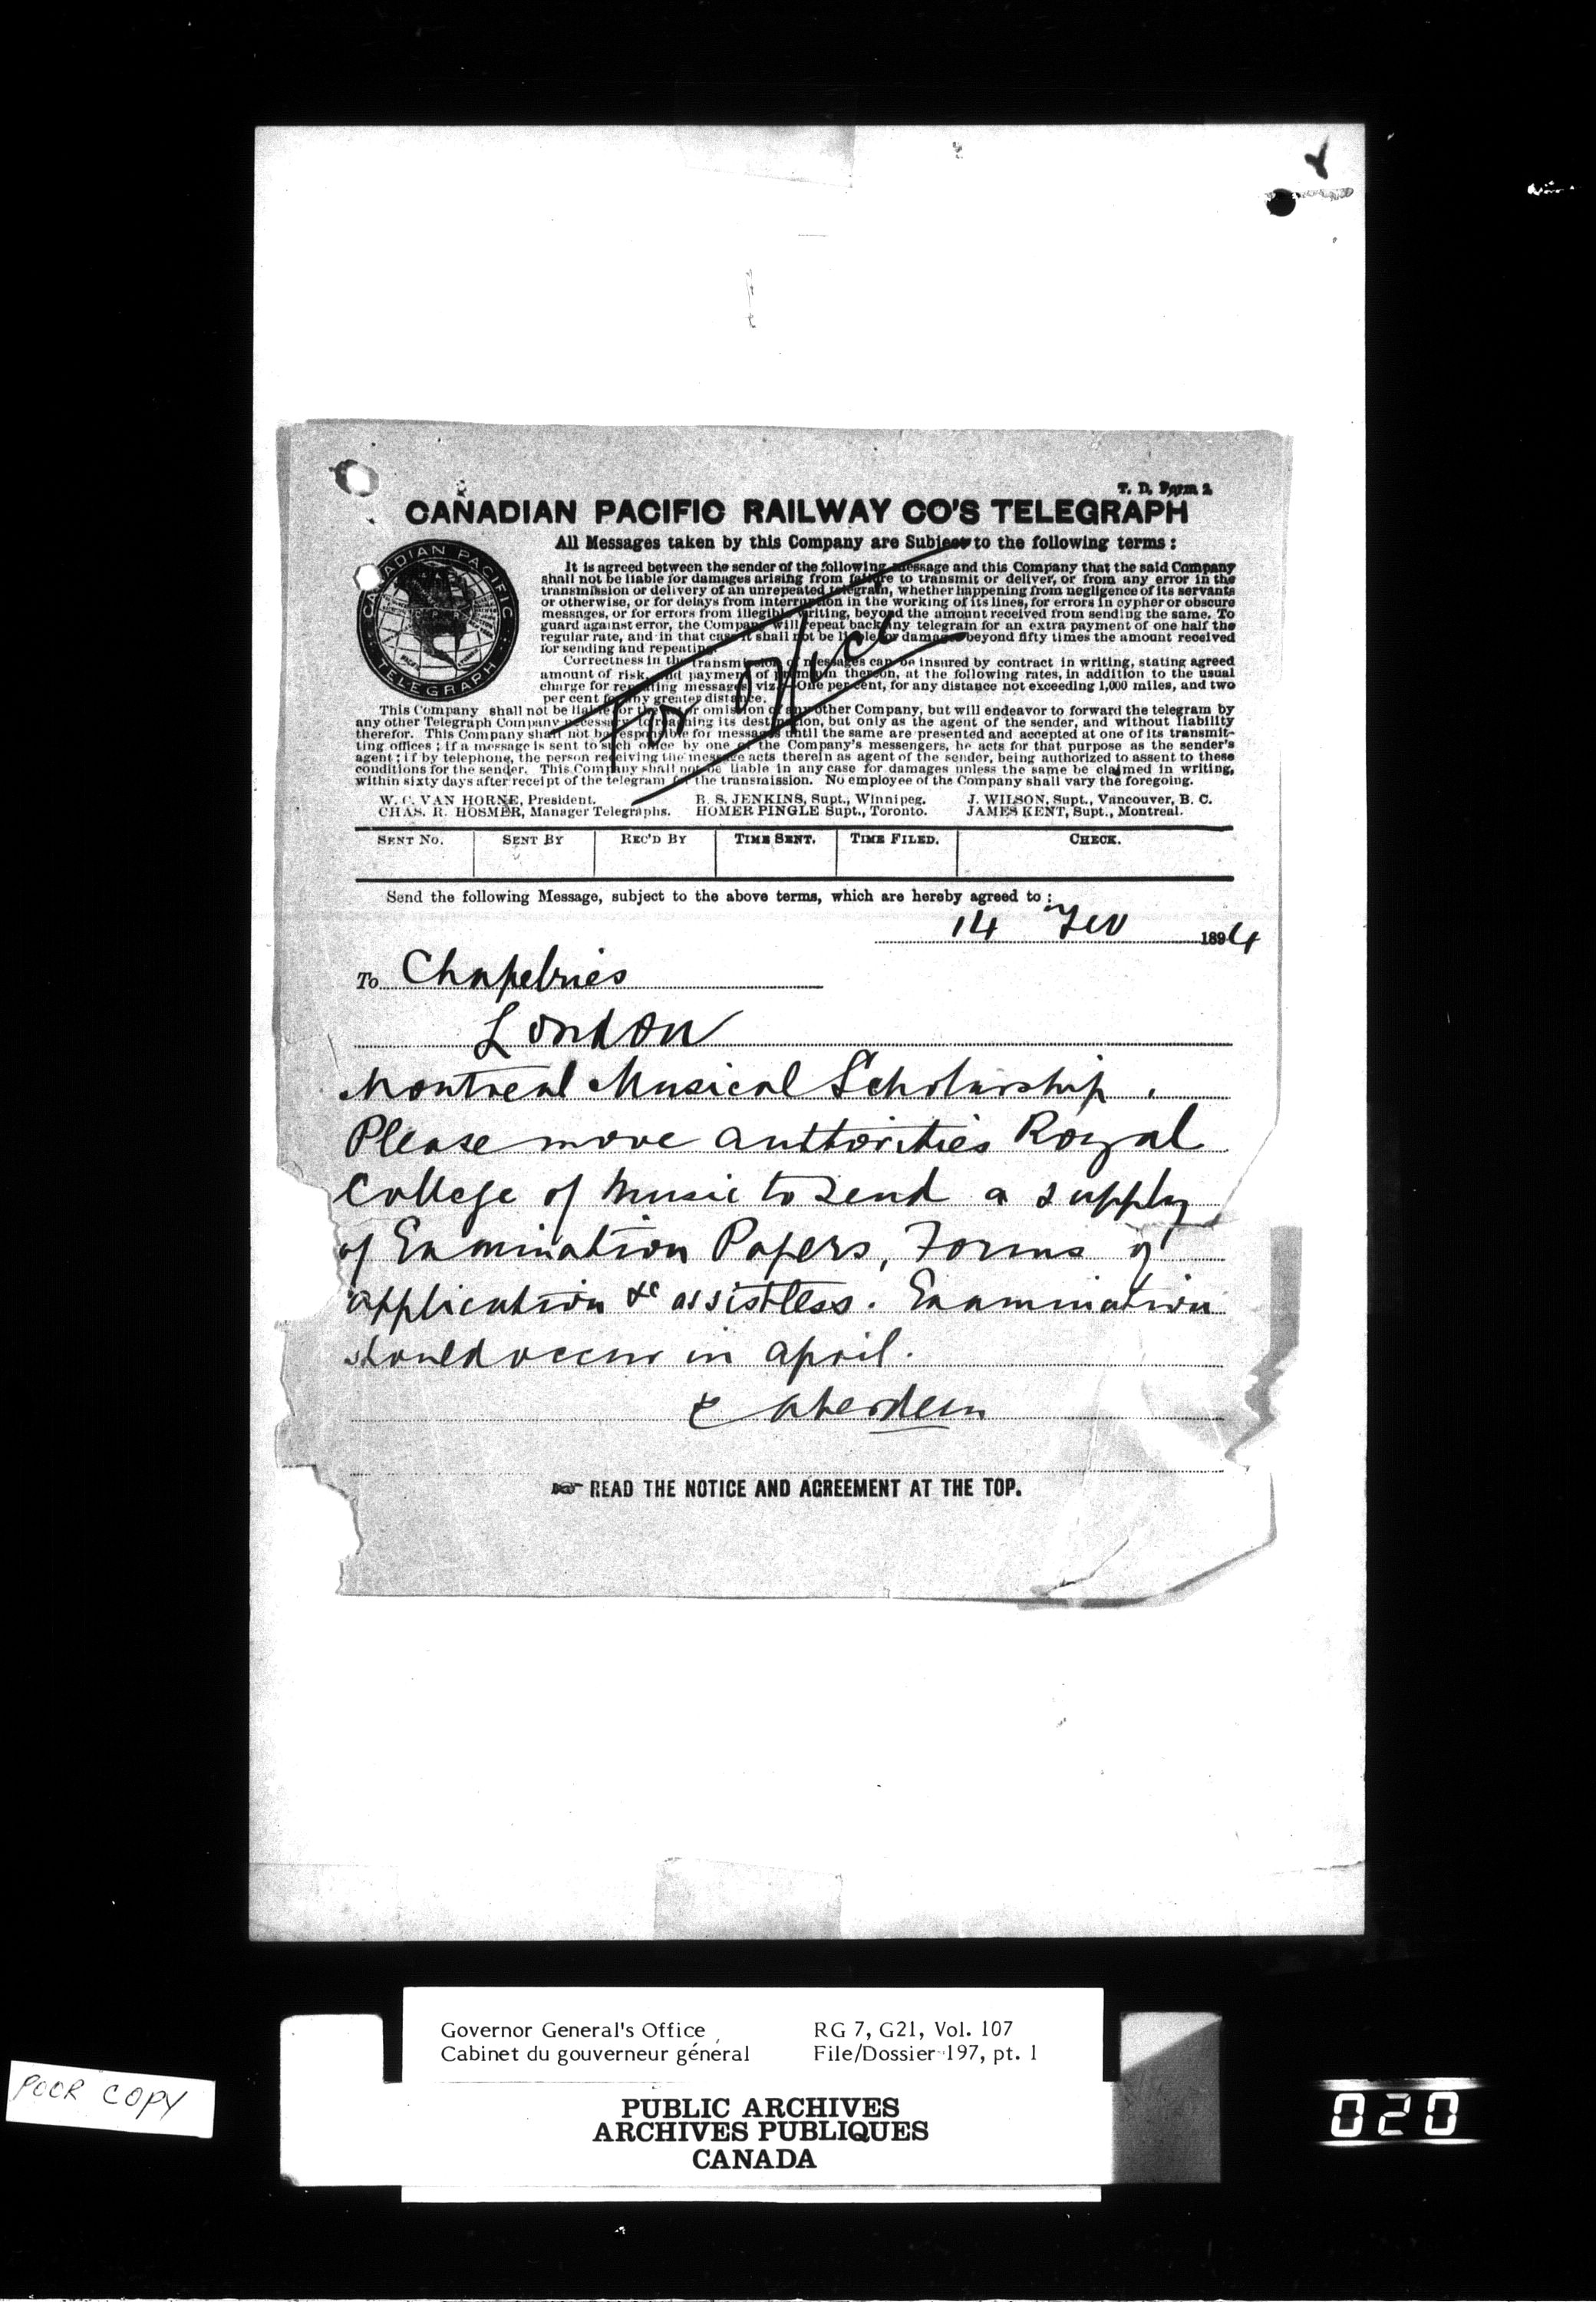 T. D. Form 2
CANADIAN PACIFIC RAILWAY CO'S TELEGRAPH
All Messages taken by this Company are Subject to the following terms:
CANADIAN PACIFIC
TELEGRAPH
It is agreed between the sender of the following message and this Company that the said Company
shall not be liable for damages arising from failure to transmit or deliver, or from any error in the
transmission or delivery of an unrepeated telegram, whether happening from negligence of its servants
or otherwise, or for delays from interruption in the working of its lines, for errors in cypher or obscure
messages, or for errors from illegible writing, beyond the amount received from sending the same. To
guard against error, the Company will repeat back any telegram for an extra payment of one half the
regular rate, and in that case it shall not be liable for damages beyond fifty times the amount received
for sending and repeating.
Correctness in the transmission of messages can be insured by contract in writing, stating agreed
amount of risk, and payment of premium thereon, at the following rates, in addition to the usual
charge for repeating messages, viz.—One per cent, for any distance not exceeding 1,000 miles, and two
per cent for any greater distance.
This Company shall not be liable for the act or omission of any other Company, but will endeavor to forward the telegram by
any other Telegraph Company necessary to reaching its destination, but only as the agent of the sender, and without liability
therefor. This Company shall not be responsible for messages until the same are presented and accepted at one of its transmit-
ting offices; if a message is sent to such office by one of the Company's messengers, he acts for that purpose as the sender's
agent; if by telephone, the person receiving the message acts therein as agent of the sender, being authorized to assent to these
conditions for the sender. This Company shall not be liable in any case for damages unless the same be claimed in writing,
within sixty days after receipt of the telegram for the transmission. No employee of the Company shall vary the foregoing.
For Office
W. C. VAN HORNE, President. B. S. JENKINS, Supt., Winnipeg. J. WILSON, Supt., Vancouver, B. C.
CHAS. R. HOSMER, Manager Telegraphs. HOMER PINGLE Supt., Toronto. JAMES KENT, Supt., Montreal.
SENT NO. SENT BY REC'D BY TIME SENT. TIME FILED. CHECK.
Send the following Message, subject to the above terms, which are hereby agreed to:
14 Feb 1894
To Chapelries
London
Montreal Musical Scholarship.
Please move authorities Royal
College of Music to send a supply
of Examination Papers, Forms of
application &c. Examination
should occur in April.
Aberdeen
READ THE NOTICE AND AGREEMENT AT THE TOP.
Governor General's Office RG 7, G21, Vol. 107
Cabinet du gouverneur général File/Dossier 197, pt. 1
PUBLIC ARCHIVES
ARCHIVES PUBLIQUES
CANADA
POOR COPY
020